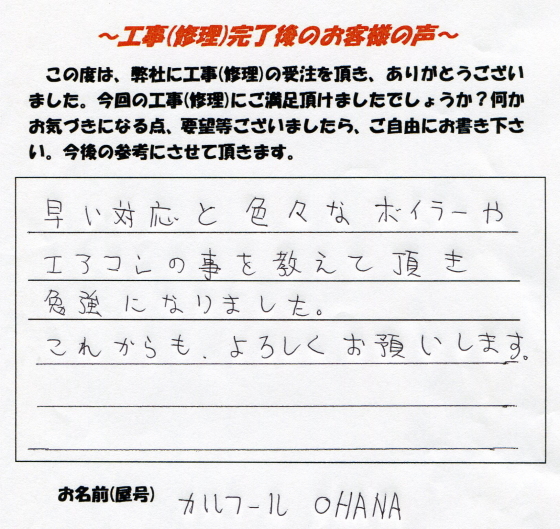 ～工事(修理)完了後のお客様の声～
この度は、弊社に工事(修理)の受注を頂き、ありがとうござい
ました。今回の工事(修理)にご満足頂けましたでしょうか？何か
お気づきになる点、要望等ございましたら、ご自由にお書き下さ
い。今後の参考にさせて頂きます。
早い対応と色々なボイラーや
エアコンの事を教えて頂き
勉強になりました。
これからも、よろしくお願いします。
お名前(屋号) カルフール OHANA